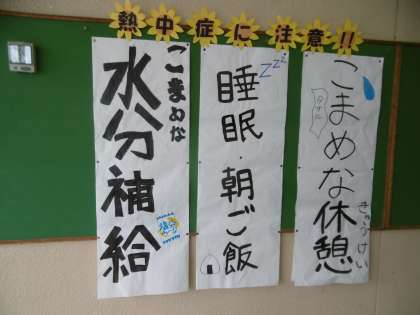 熱中症に注意!!
こまめな
水分補給
zzz
睡眠・朝ご飯
こまめな休憩
きゅうけい